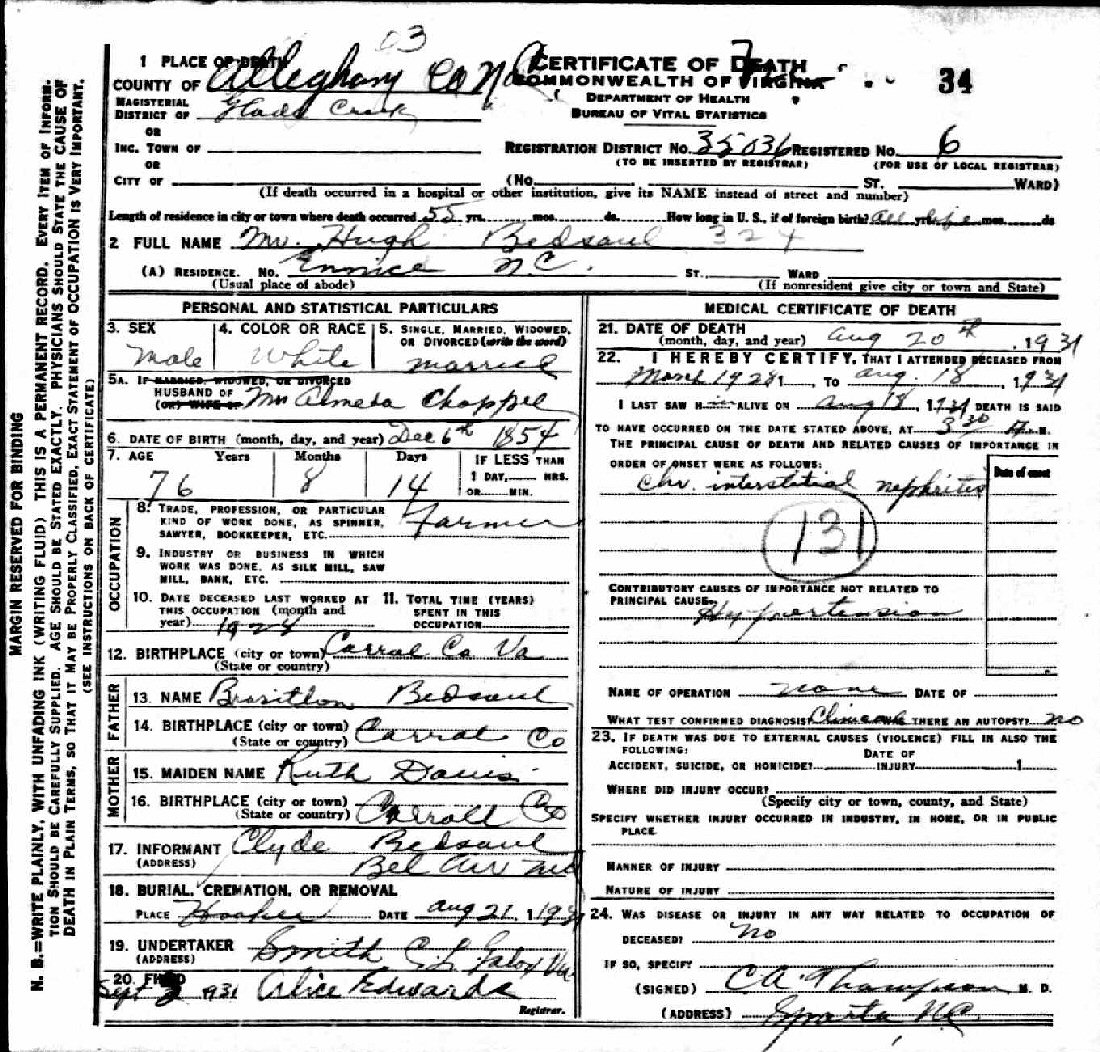 03
CERTIFICATE OF DEATH
COMMONWEALTH OF VIRGINIA
DEPARTMENT OF HEALTH
BUREAU OF VITAL STATISTICS
34
1 PLACE OF DEATH
COUNTY OF Alleghany Co N.C.
MAGISTERIAL
DISTRICT OF Glade Creek
OR
INC. TOWN OF
OR
CITY OF
REGISTRATION DISTRICT NO. 35036 REGISTERED NO. 6
(TO BE INSERTED BY REGISTRAR) (FOR USE OF LOCAL REGISTRAR)
(No. ST. WARD)
(If death occurred in a hospital or other institution, give its NAME instead of street and number)
Length of residence in city or town where death occurred 55 yrs. mos. ds. How long in U. S., if of foreign birth? All yrs life mos. ds
2 FULL NAME Mr. Hugh Bedsaul 324
(A) RESIDENCE. No. Ennice N.C. ST. WARD
(Usual place of abode) (If nonresident give city or town and State)
PERSONAL AND STATISTICAL PARTICULARS
3. SEX 4. COLOR OR RACE 5. SINGLE, MARRIED, WIDOWED,
OR DIVORCED (write the word)
Male White married
5A. IF MARRIED, WIDOWED, OR DIVORCED
HUSBAND OF
(OR) WIFE OF Mrs Almeda Chappel
6. DATE OF BIRTH (month, day, and year) Dec 6th 1854
7. AGE Years Months Days IF LESS THAN
1 DAY, HRS.
OR MIN.
76 8 14
OCCUPATION
8. TRADE, PROFESSION, OR PARTICULAR
KIND OF WORK DONE, AS SPINNER,
SAWYER, BOOKKEEPER, ETC. Farmer
9. INDUSTRY OR BUSINESS IN WHICH
WORK WAS DONE. AS SILK MILL, SAW
MILL, BANK, ETC.
10. DATE DECEASED LAST WORKED AT
THIS OCCUPATION (month and
year) 1924
11. TOTAL TIME (YEARS)
SPENT IN THIS
OCCUPATION
12. BIRTHPLACE (city or town) Carral Co Va
(State or country)
FATHER
13. NAME Bedsaul
14. BIRTHPLACE (city or town) Carral Co
(State or country)
MOTHER
15. MAIDEN NAME Ruth Davis
16. BIRTHPLACE (city or town) Carroll Co
(State or country)
17. INFORMANT Clyde Bedsaul
(ADDRESS) Bel Air Md
18. BURIAL, CREMATION, OR REMOVAL
PLACE DATE Aug 21, 1931
19. UNDERTAKER Smith C. L. Galax Va
(ADDRESS)
20. FILED Sept 2 1931 Alice Edwards
Registrar.
MEDICAL CERTIFICATE OF DEATH
21. DATE OF DEATH
(month, day, and year) Aug 20th, 1931
22. I HEREBY CERTIFY, THAT I ATTENDED DECEASED FROM
1928, TO Aug. 18, 1931
I LAST SAW HIM ALIVE ON Aug 18, 1931 DEATH IS SAID
TO HAVE OCCURRED ON THE DATE STATED ABOVE, AT 3 30 M.
THE PRINCIPAL CAUSE OF DEATH AND RELATED CAUSES OF IMPORTANCE IN
ORDER OF ONSET WERE AS FOLLOWS:
Date of onset
Chr. interstitial nephritis
131
CONTRIBUTORY CAUSES OF IMPORTANCE NOT RELATED TO
PRINCIPAL CAUSE:
Hypertension
NAME OF OPERATION none DATE OF
WHAT TEST CONFIRMED DIAGNOSIS? Clinical WAS THERE AN AUTOPSY? no
23. IF DEATH WAS DUE TO EXTERNAL CAUSES (VIOLENCE) FILL IN ALSO THE
FOLLOWING:
DATE OF
ACCIDENT, SUICIDE, OR HOMICIDE? INJURY 1
WHERE DID INJURY OCCUR?
(Specify city or town, county, and State)
SPECIFY WHETHER INJURY OCCURRED IN INDUSTRY, IN HOME, OR IN PUBLIC
PLACE.
MANNER OF INJURY
NATURE OF INJURY
24. WAS DISEASE OR INJURY IN ANY WAY RELATED TO OCCUPATION OF
DECEASED? No
IF SO, SPECIFY
(SIGNED) C A Thompson M. D.
(ADDRESS) Sparta, N.C.
MARGIN RESERVED FOR BINDING
N. B.=WRITE PLAINLY, WITH UNFADING INK (WRITING FLUID) THIS IS A PERMANENT RECORD. EVERY ITEM OF INFORM-
TION SHOULD BE CAREFULLY SUPPLIED. AGE SHOULD BE STATED EXACTLY. PHYSICIANS SHOULD STATE THE CAUSE OF
DEATH IN PLAIN TERMS, SO THAT IT MAY BE PROPERLY CLASSIFIED. EXACT STATEMENT OF OCCUPATION IS VERY IMPORTANT.
(SEE INSTRUCTIONS ON BACK OF CERTIFICATE)